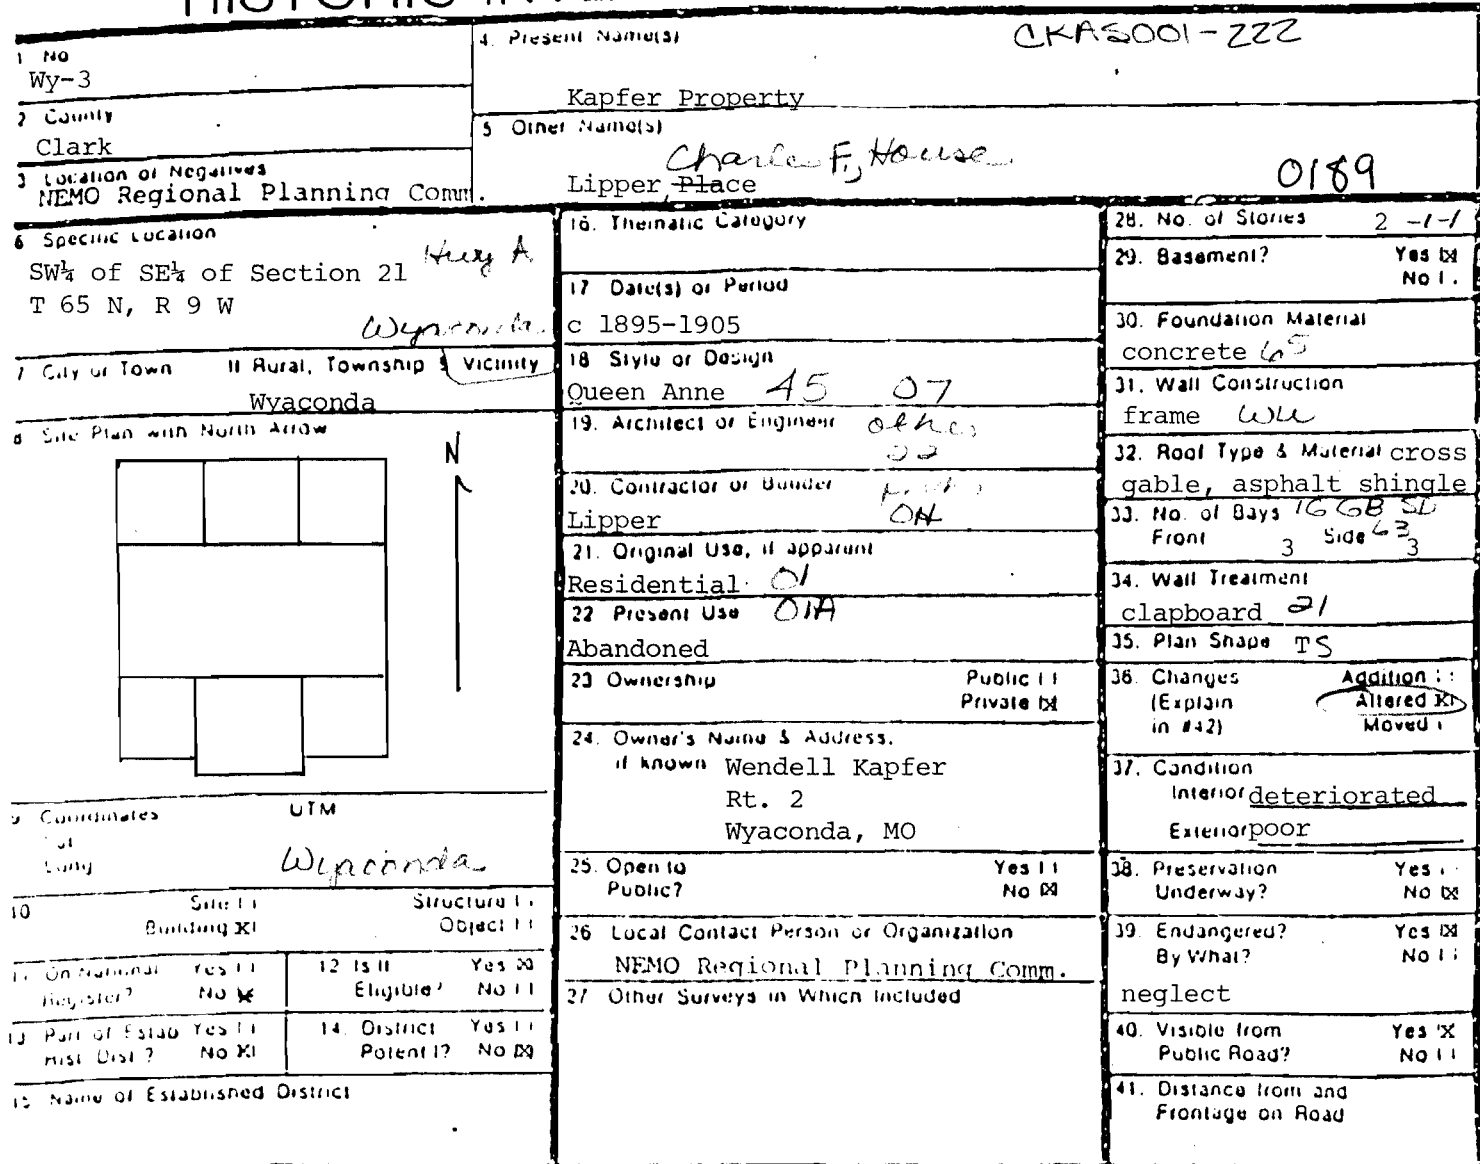 CKAS001-222
1 No
Wy-3
4. Present Name(s)
Kapfer Property
2 County
Clark
5 Other Name(s)
Charles F., House
Lipper, Place
0189
3 Location of Negatives
NEMO Regional Planning Comm.
6 Specific Location
SW¼ of SE¼ of Section 21
T 65 N, R 9 W
Wyaconda
7 City or Town If Rural, Township & Vicinity
Wyaconda
8 Site Plan with North Arrow
N
9 Coordinates UTM
Lat
Long
Wyaconda
10 Site [ ] Structure [ ]
Building [X] Object [ ]
11 On National Register? Yes [ ] No [X]
12 Is It Eligible? Yes [X] No [ ]
13 Part of Estab Hist. Dist.? Yes [ ] No [X]
14. District Potent'l? Yes [ ] No [X]
15 Name of Established District
16. Thematic Category
17 Date(s) or Period
c 1895-1905
18 Style or Design
Queen Anne 45 07
19. Architect or Engineer
other
20. Contractor or Builder
Lipper OH
21. Original Use, if apparent
Residential 01
22 Present Use 01A
Abandoned
23 Ownership Public [ ]
Private [X]
24. Owner's Name & Address,
if known Wendell Kapfer
Rt. 2
Wyaconda, MO
25. Open to Yes [ ]
Public? No [X]
26 Local Contact Person or Organization
NEMO Regional Planning Comm.
27 Other Surveys in Which Included
28. No. of Stories 2 -1-1
29. Basement? Yes [X]
No [ ]
30. Foundation Material
concrete 65
31. Wall Construction
frame WU
32. Roof Type & Material cross
gable, asphalt shingle
33. No. of Bays 16 GB SD
Front 3 Side 63 3
34. Wall Treatment
clapboard 21
35. Plan Shape TS
36. Changes Addition [ ]
(Explain Altered [X]
in #42) Moved [ ]
37. Condition
Interior deteriorated
Exterior poor
38. Preservation Yes [ ]
Underway? No [X]
39. Endangered? Yes [X]
By What? No [ ]
neglect
40. Visible from Yes [X]
Public Road? No [ ]
41. Distance from and
Frontage on Road